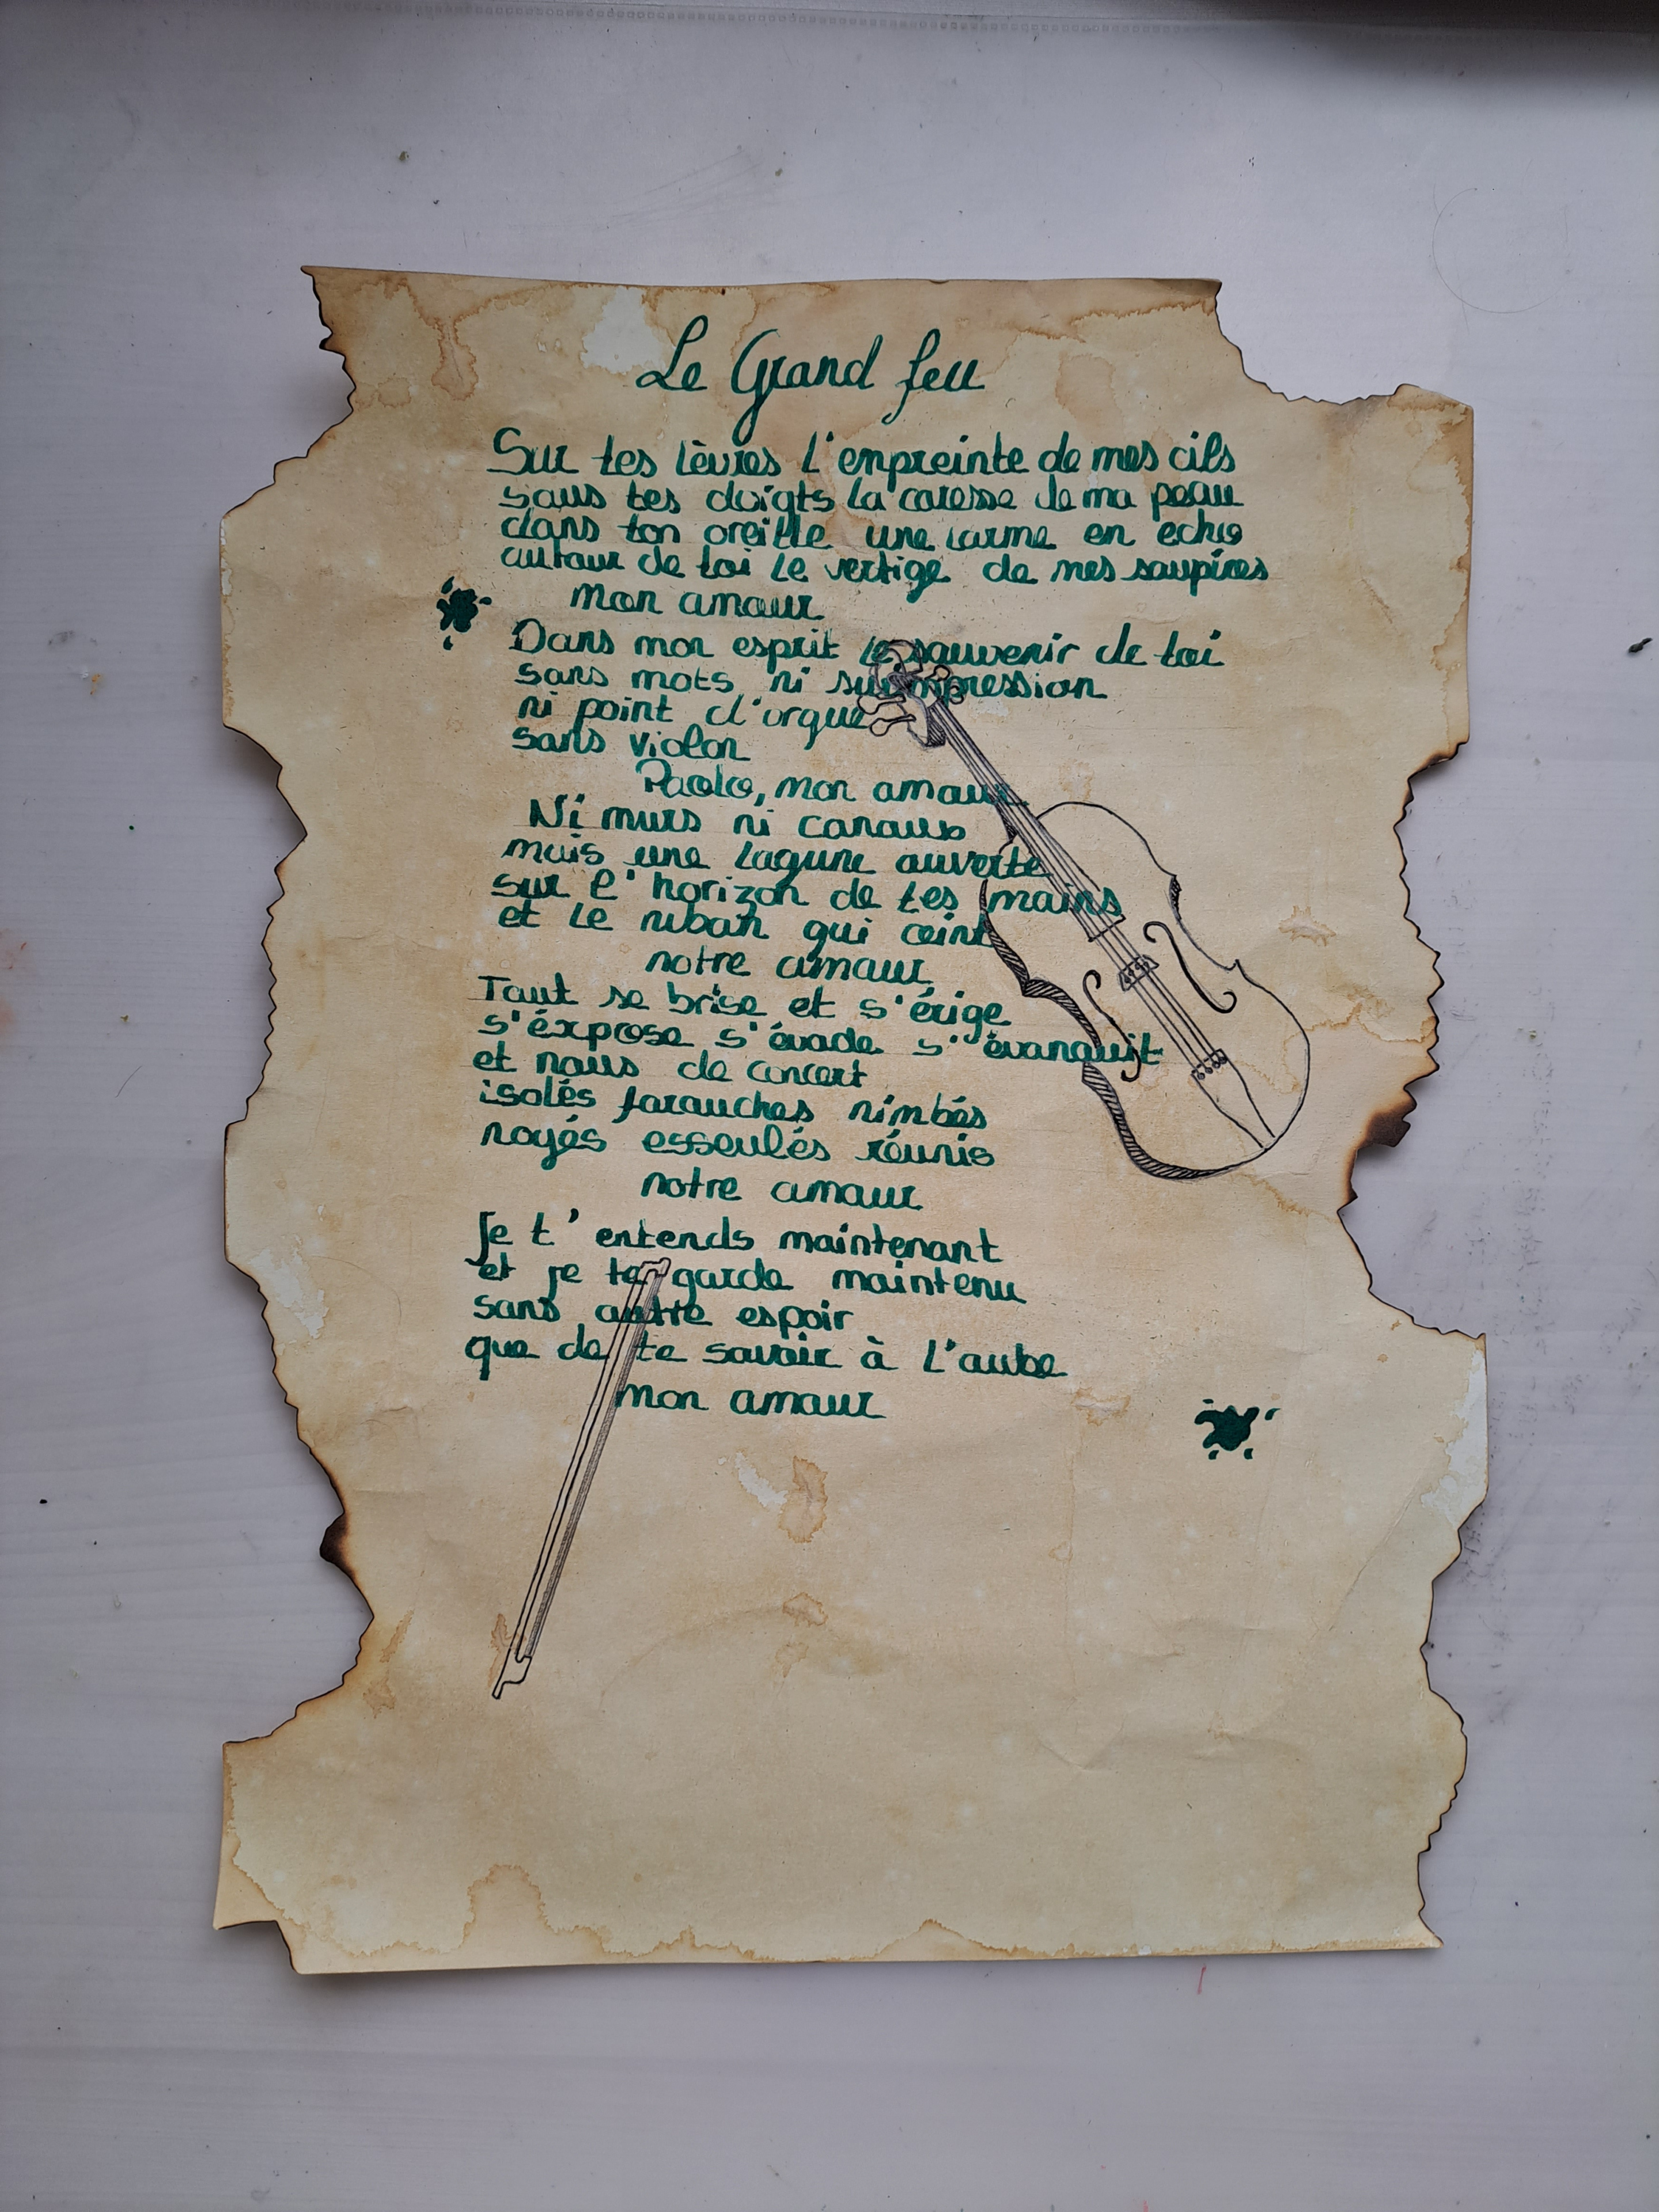 Le Grand feu
Sur tes lèvres l'enpreinte de mes cils
sous tes doigts la caresse de ma peau
dans ton oreille une larme en echo
autour de toi le vertige de mes soupires
mon amour
Dans mon esprit le souvenir de toi
sans mots ni surimpression
ni point d'orgue
sans violon
Paolo, mon amour
Ni murs ni canaux
mais une lagune ouverte
sur l'horizon de tes mains
et le ruban qui ceint
notre amour
Tout se brise et s'érige
s'éxpose s'évade s'évanouit
et nous de concert
isolés farouches nimbés
noyés esseulés réunis
notre amour
Je t'entends maintenant
et je te garde maintenu
sans autre espoir
que de te savoir à l'aube
mon amour